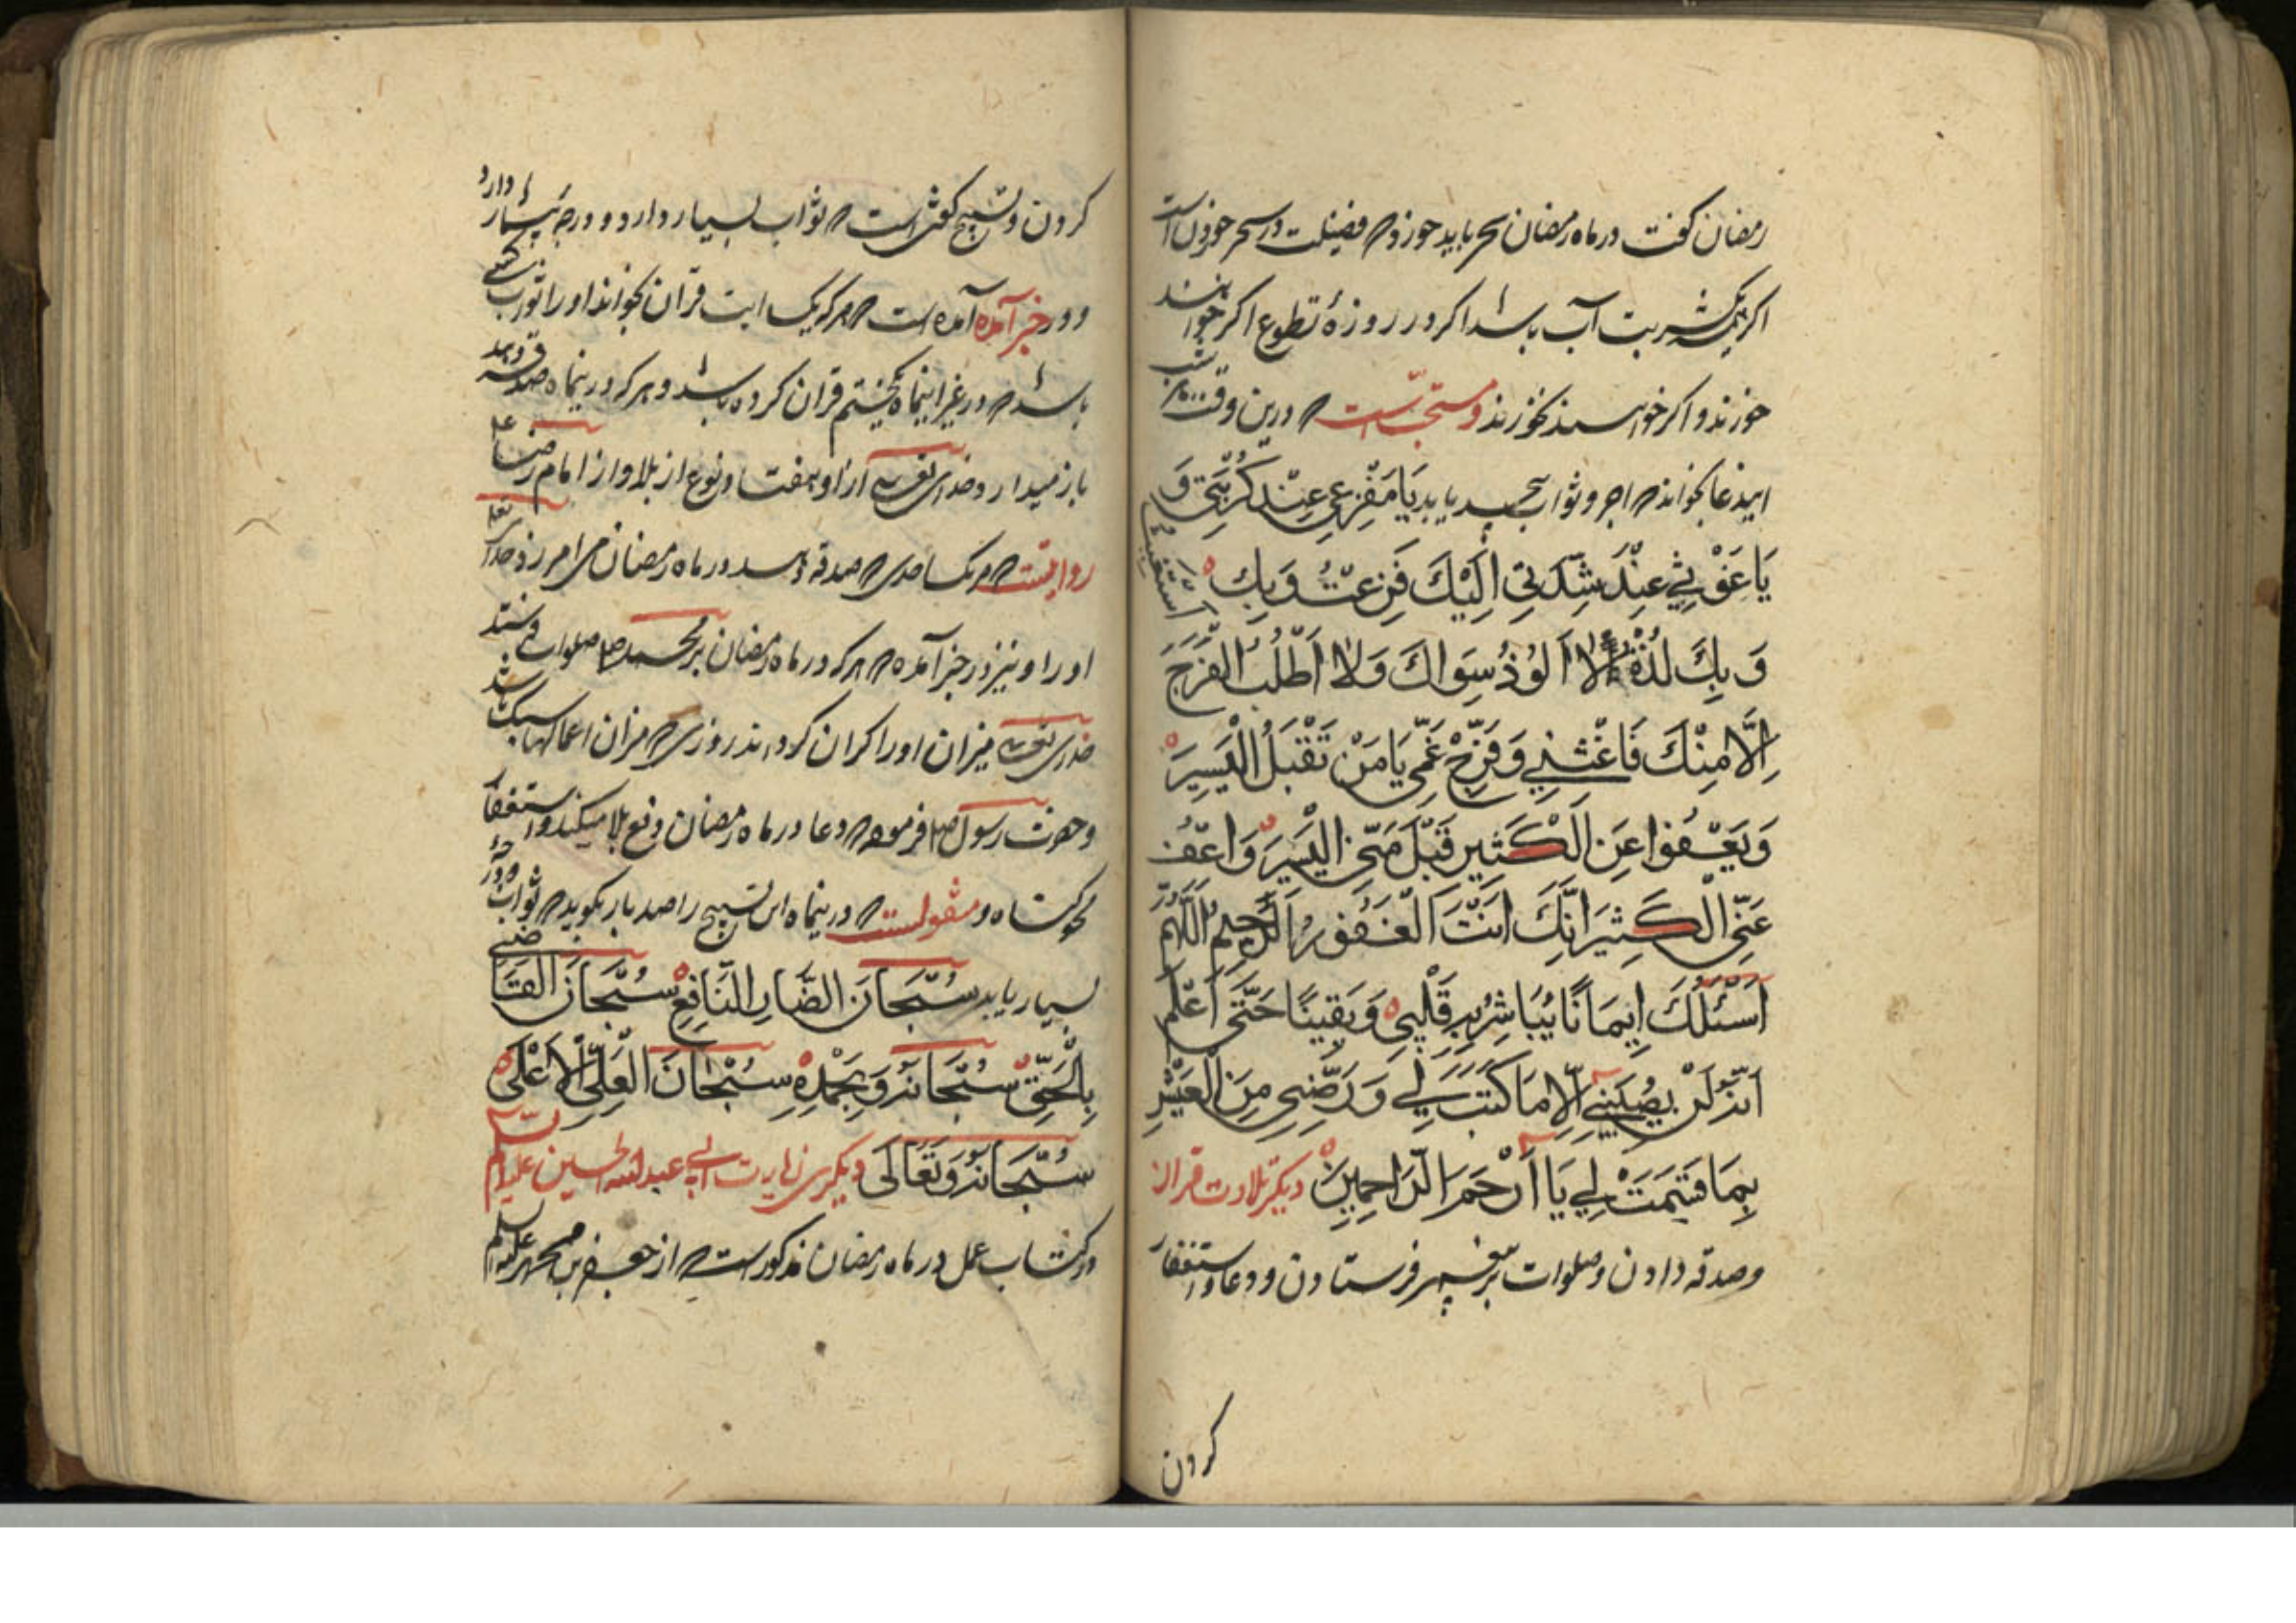 رمضان گفت در ماه رمضان سحر باید خورد که فضیلت در سحر خوردن است
اگر یک شربت آب باشد اگر در روزهٔ تطوع اگر خواهند
خورند و اگر خواهند نخورند و مستحبّست که درین وقت شب
این دعا بخواند که اجر و ثواب بیحد یابد یَا مَفْزَعِی عِنْدَ کُرْبَتِی وَ
یَا غَوْثِی عِنْدَ شِدَّتِی اِلَیْكَ فَزِعْتُ وَ بِكَ اسْتَغَثْتُ
وَ بِكَ لُذْتُ لَا اَلُوذُ سِوَاكَ وَ لَا اَطْلُبُ الْفَرَجَ
اِلَّا مِنْكَ فَاَغِثْنِی وَ فَرِّجْ عَنِّی یَا مَنْ تَقْبَلُ الْیَسِیرَ
وَ یَعْفُوا عَنِ الْکَثِیرِ اقْبَلْ مِنِّی الْیَسِیرَ وَ اعْفُ
عَنِّی الْکَثِیرَ اِنَّكَ اَنْتَ الْغَفُورُ الرَّحِیمُ اَللّٰهُمَّ
اَسْئَلُكَ اِیمَانًا تُبَاشِرُ بِهِ قَلْبِی وَ یَقِینًا حَتّٰی اَعْلَمَ
اَنَّهُ لَنْ یُصِیبَنِی اِلَّا مَا کَتَبْتَ لِی وَ رَضِّنِی مِنَ الْعَیْشِ
بِمَا قَسَمْتَ لِی یَا اَرْحَمَ الرَّاحِمِینَ دیکر تلاوت قران
و صدقه دادن و صلوات بر پیغمبر فرستادن و دعا و استغفار
کردن
کردن و تسبیح گفتن است که ثواب بسیار دارد و درجه بیشمار دارد
و در خبر آمده آمده است که هر که یک ایت قران بخواند او را ثواب کسی
باشد که در غیر اینماه ختم قران کرده باشد و هر که درینماه صدقه دهد
خدای تعالی ازو هفتاد نوع از بلا و از امام رضا ع
روایتست که هر یک صدقه که دهد در ماه رمضان خدای تعالی
او را و نیز در خبر آمده که هر که در ماه رمضان بر محمد صلوات فرستد
خدای تعالی میزان او را گران گرداند در روزی که میزان اعمالها سبک باشد
و حضرت رسول فرموده که دعا در ماه رمضان دفع بلا میکند و استغفار
محو گناه و منقولست که درینماه این تسبیح را صد بار بگوید که ثواب
بسیار یابد سُبْحَانَ الضَّارِ النَّافِعِ سُبْحَانَ الْقَاضِی
بِالْحَقِّ سُبْحَانَهُ وَ بِحَمْدِهِ سُبْحَانَ الْعَلِیِّ الْاَعْلٰی
سُبْحَانَهُ وَ تَعَالَی دیکری زیارت ابی عبدالله الحسین علیه السلام
در کتاب عمل در ماه رمضان مذکورست که از جعفر بن محمد علیه السلام